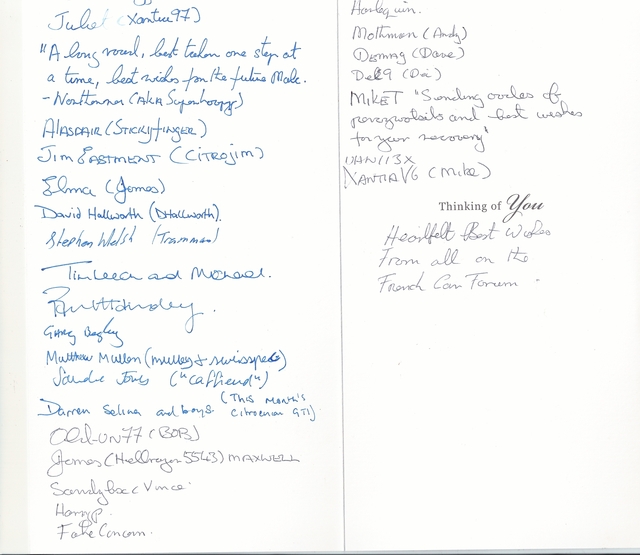 Julie (Xantia97)
"A long road, best taken one step at
a time, best wishes for the future Mate.
- Northerner (AKA Superhoopz)
ALASDAIR (STICKYFINGER)
JIM EASTMENT (CITROJIM)
Elma (James)
David Hallworth (DHallworth).
Stephen Welsh
Tim Leech and Michael.
Matthew Mullen
Sandie Jones ("Caffiend")
Darren Selina and boys. (This month's
Citroenian GTI)
Old-UN77 (BOB)
James (Hellrazor5543) MAXWELL
Vince
Harryp.
Harlequin.
Mothman (Andy)
(Dave)
MikeT "Sending oodles of
and best wishes
for your recovery"
VAN113X
XANTIAV6 (Mike)
Thinking of You
Heartfelt Best Wishes
From all on the
French Car Forum.